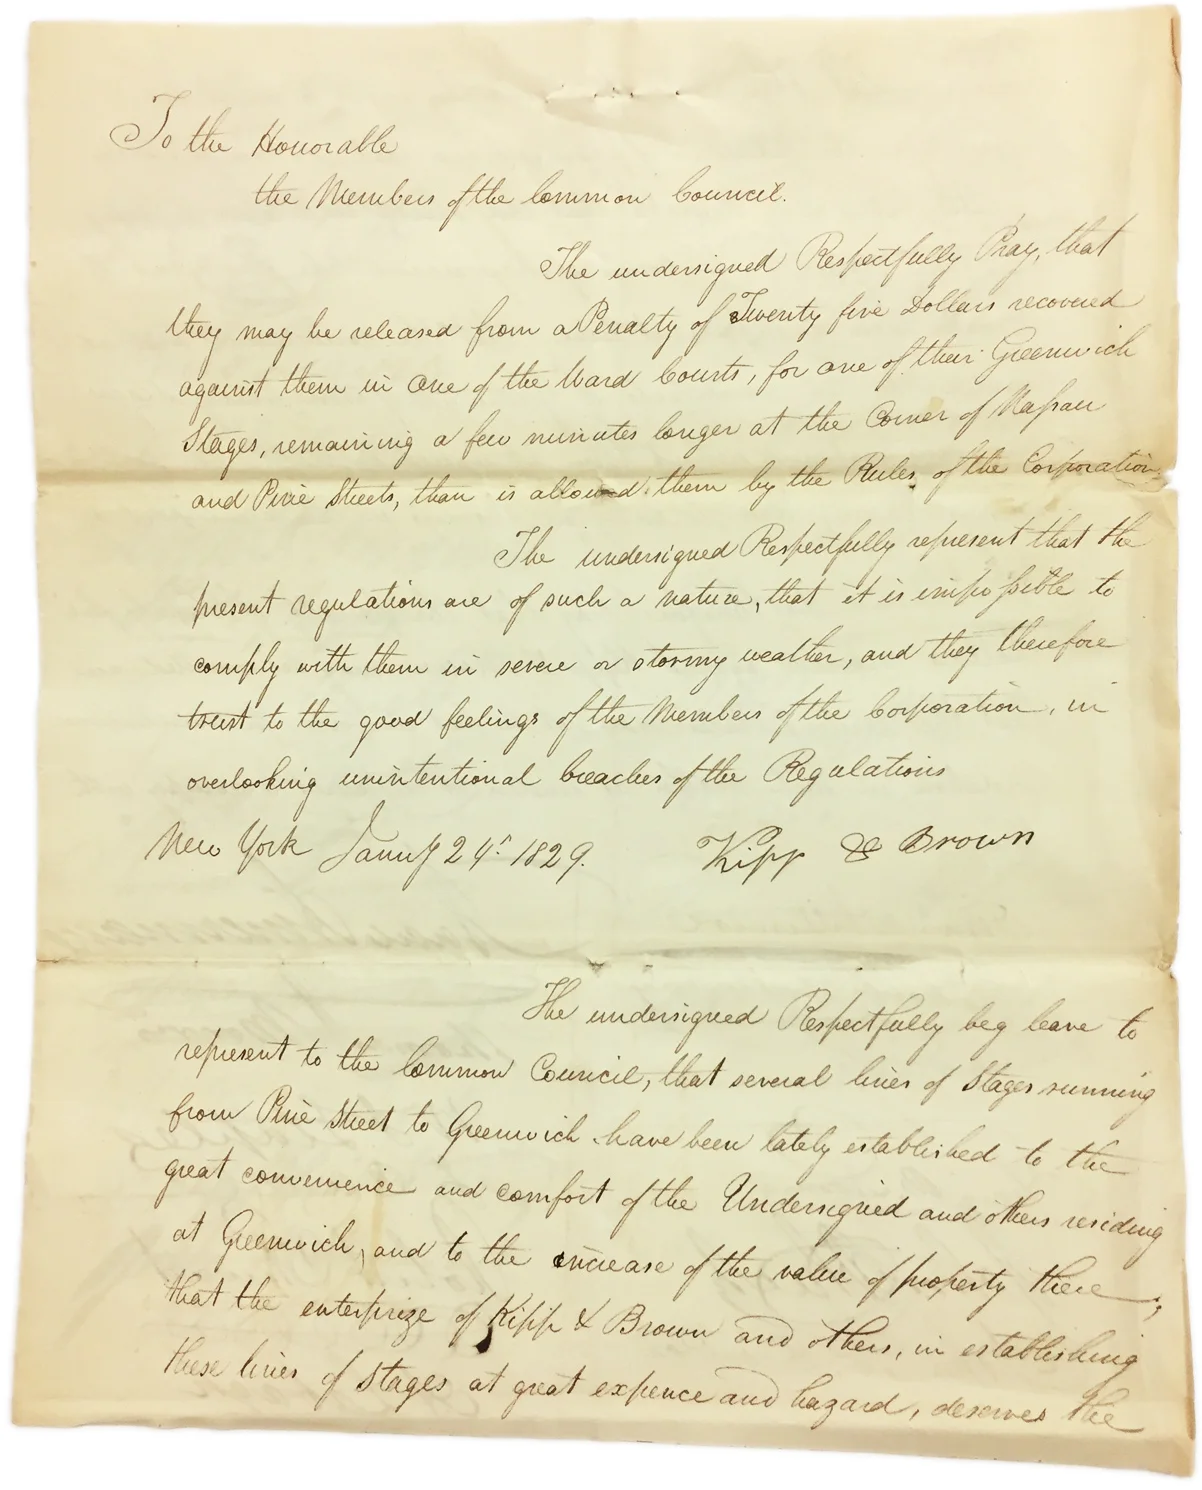 To the Honorable
the Members of the Common Council.
The undersigned Respectfully Pray, that
they may be released from a Penalty of Twenty five Dollars recovered
against them in one of the Ward Courts, for one of their Greenwich
Stages, remaining a few minutes longer at the Corner of Nassau
and Pine Streets, than is allowed them by the Rules of the Corporation
The undersigned Respectfully represent that the
present regulations are of such a nature, that it is impossible to
comply with them in severe or stormy weather, and they therefore
trust to the good feelings of the Members of the Corporation, in
overlooking unintentional breaches of the Regulations
New York Januy 24th 1829. Kipp & Brown
The undersigned Respectfully beg leave to
represent to the Common Council, that several lines of Stages running
from Pine Street to Greenwich have been lately established to the
great convenience and comfort of the Undersigned and others residing
at Greenwich, and to the increase of the value of property there,
that the enterprize of Kipp & Brown and others, in establishing
these lines of Stages at great expence and hazard, deserves the